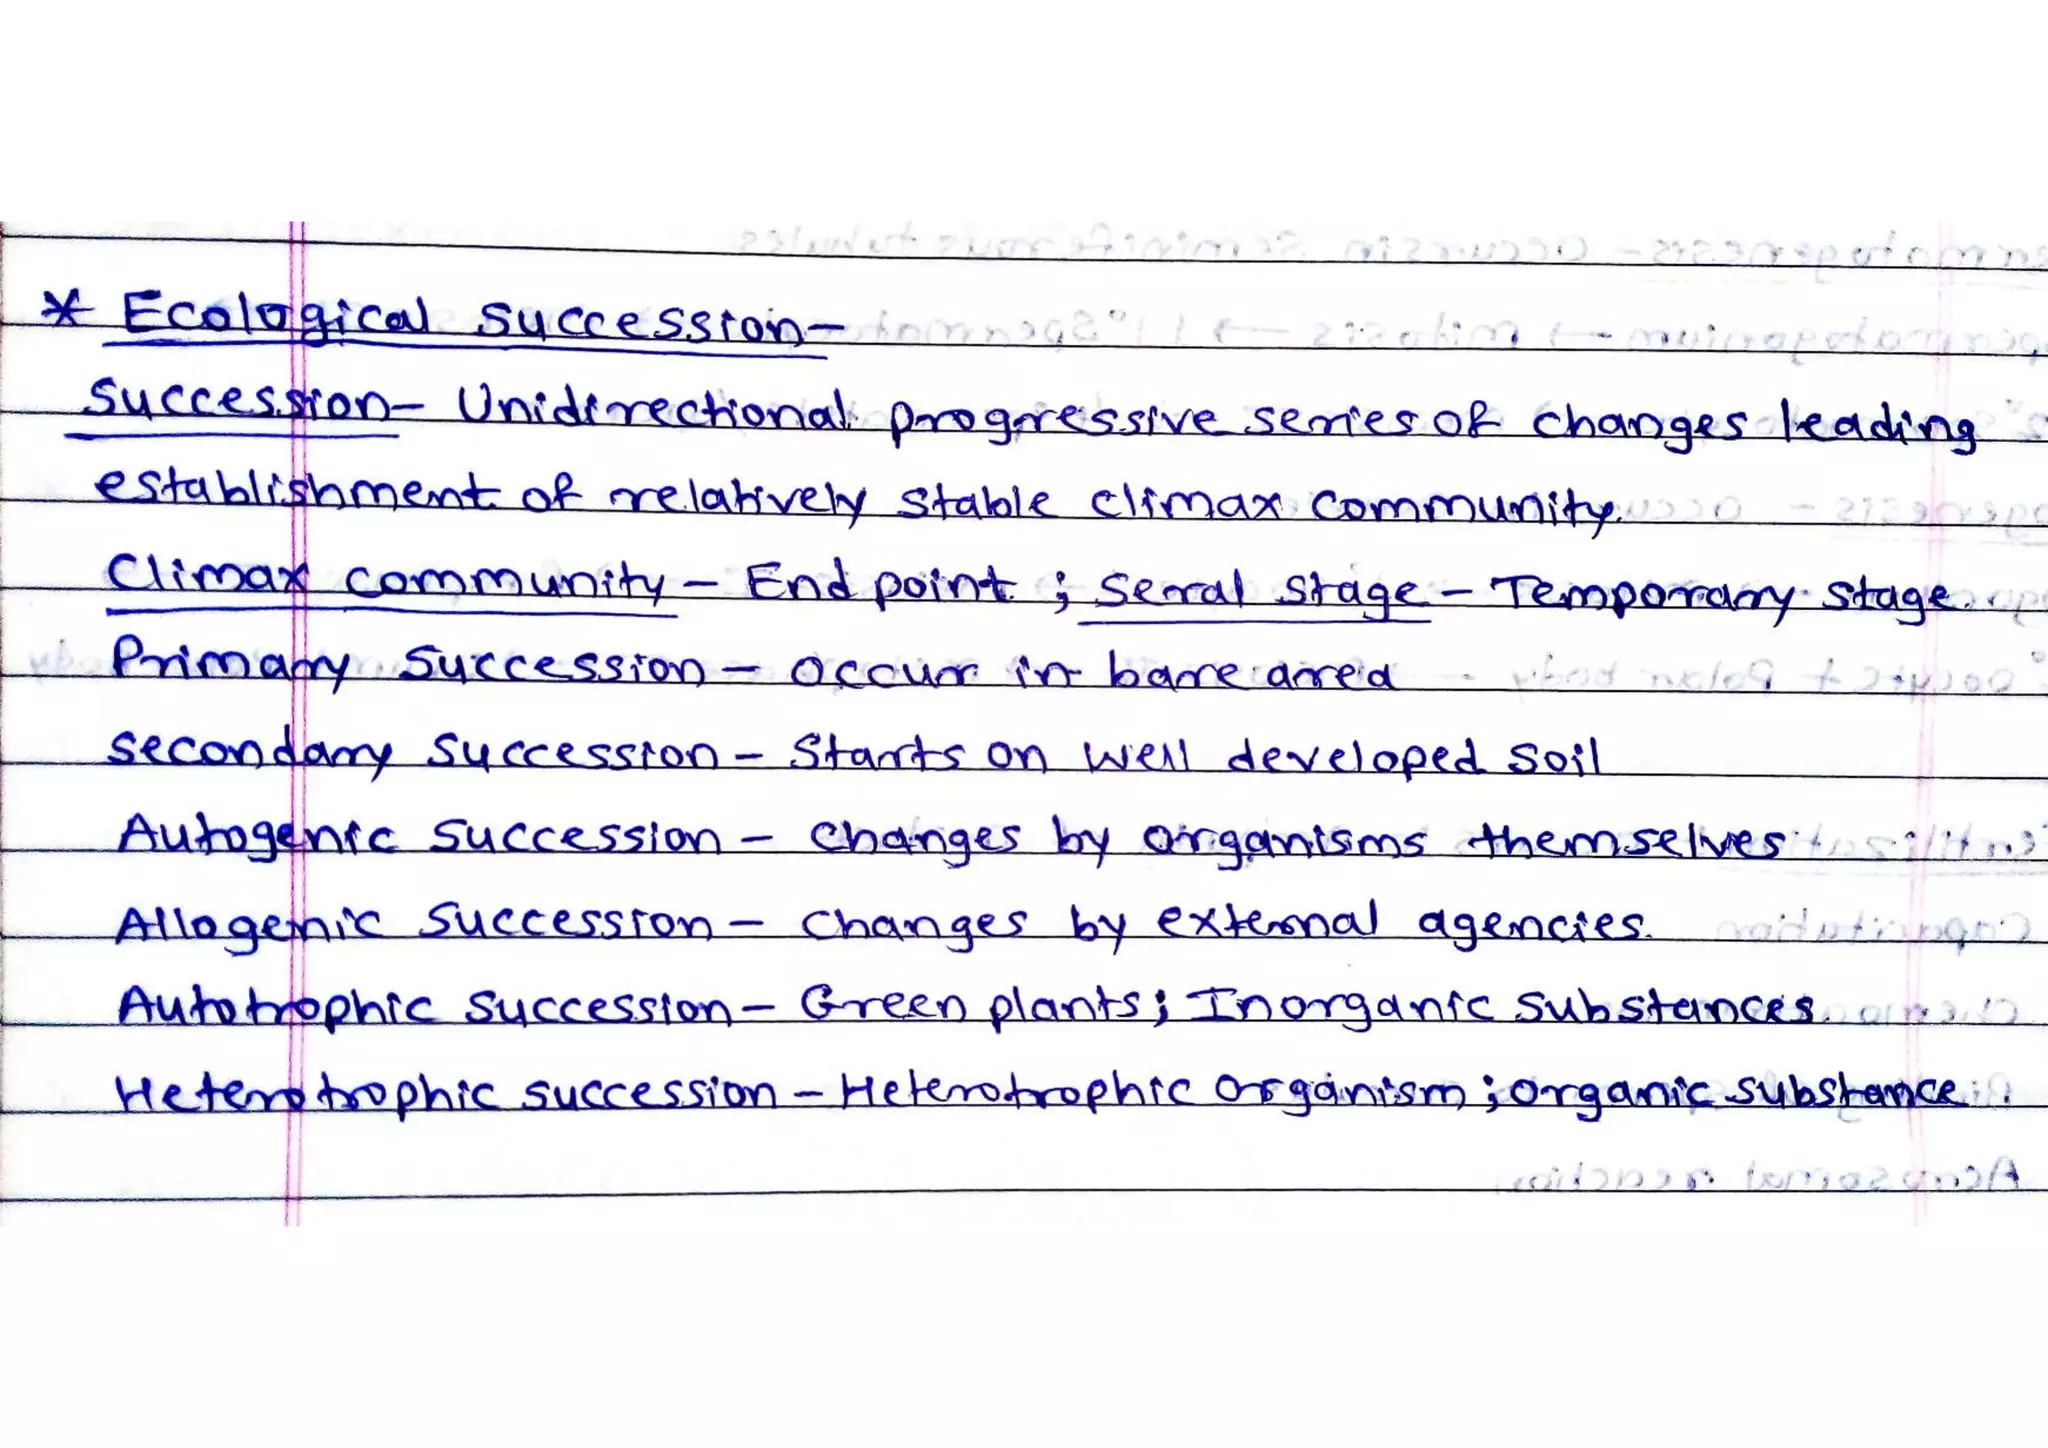 * Ecological succession-
Succession- Unidirectional progressive series of changes leading
establishment of relatively stable climax community.
Climax community - End point ; Seral stage - Temporary stage.
Primary Succession - occur in bare area
Secondary Succession - Starts on well developed soil
Autogenic Succession - changes by organisms themselves
Allogenic Succession - changes by external agencies.
Autotrophic Succession - Green plants ; Inorganic substances.
Heterotrophic succession - Heterotrophic organism ; organic substance.